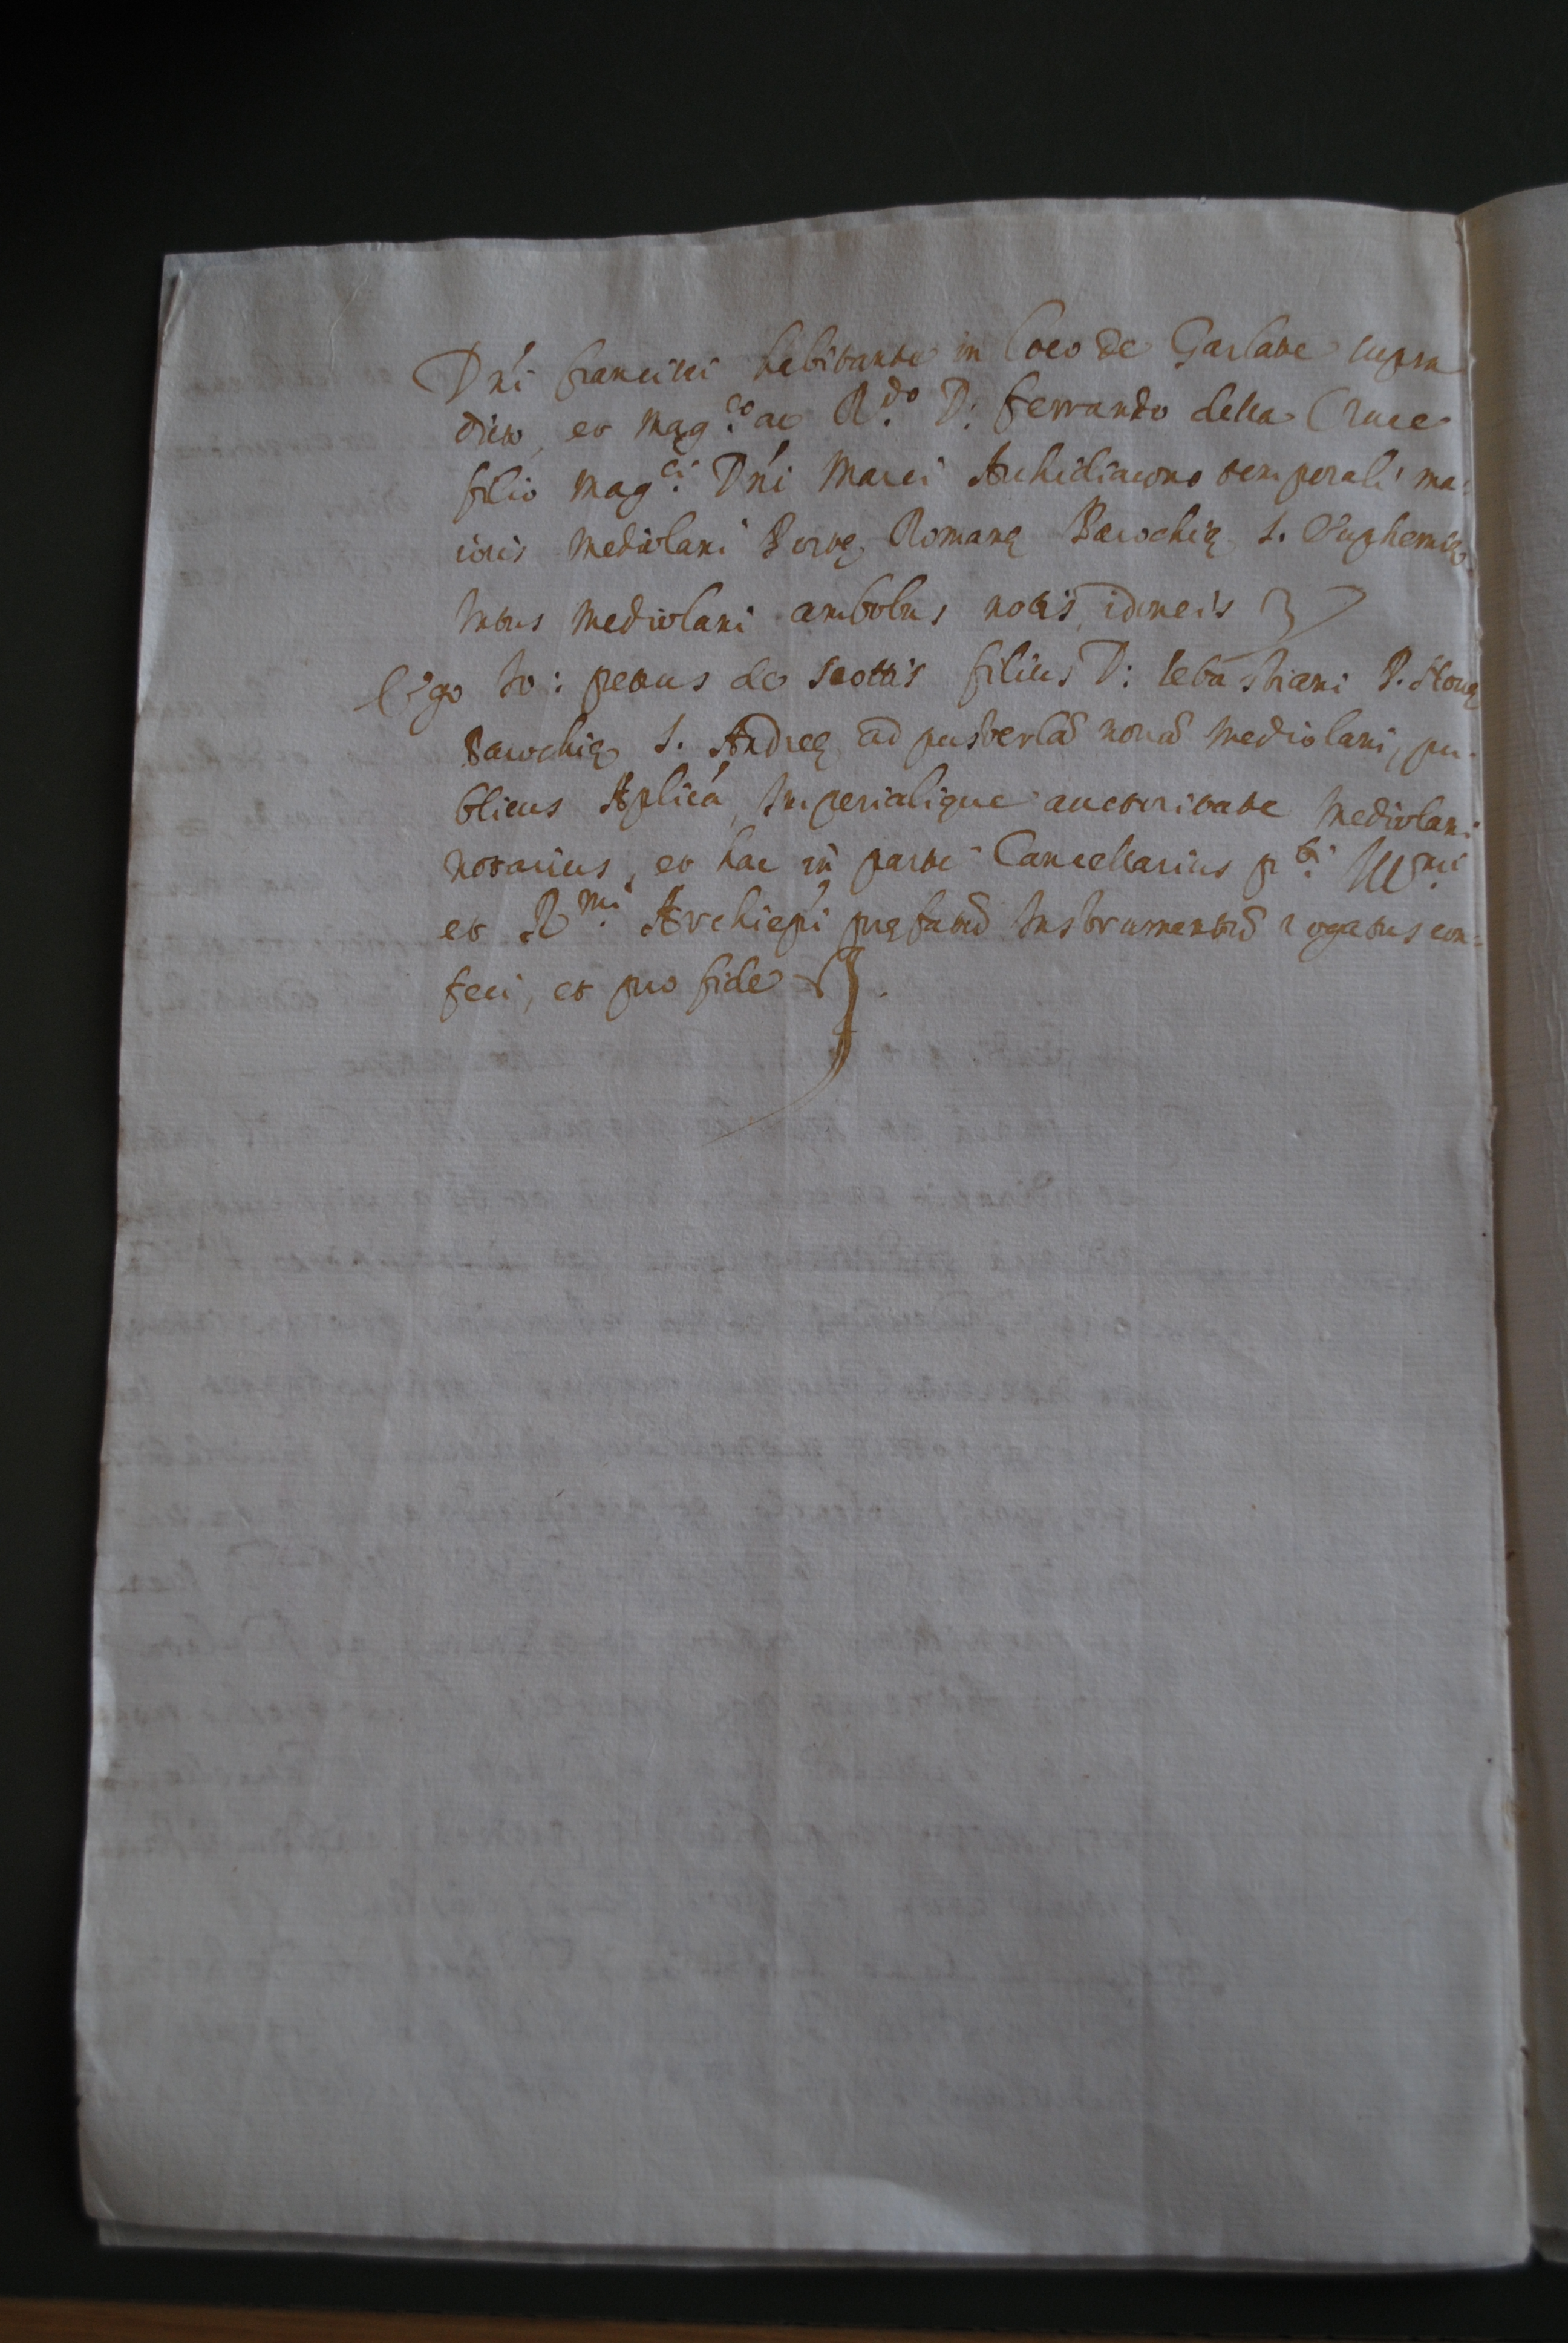 Dńi francisci habitante in loco de Garlate supra
dicto, et mag.co ac R.do D: ferrando della Cruce
filio mag.ci Dńi Marci Archidiacono temperali ma:
ioris Mediolani Portę Romanę Parochię S. Euphemię
Intus Mediolani ambobus notis, idoneis
Ego Io: petrus de Scottis filius D: sebastiani P. Nouę
Parochię S. Andreę ad pusterlā nouā Mediolani, pu:
blicus Aplicá, Imperialique auctoritate Mediolani
notarius, et hac in parte Cancellarius p.ti Ill.mi
et R.mi Archiepi pręfatū Instrumentū rogatus con:
feci, et pro fide